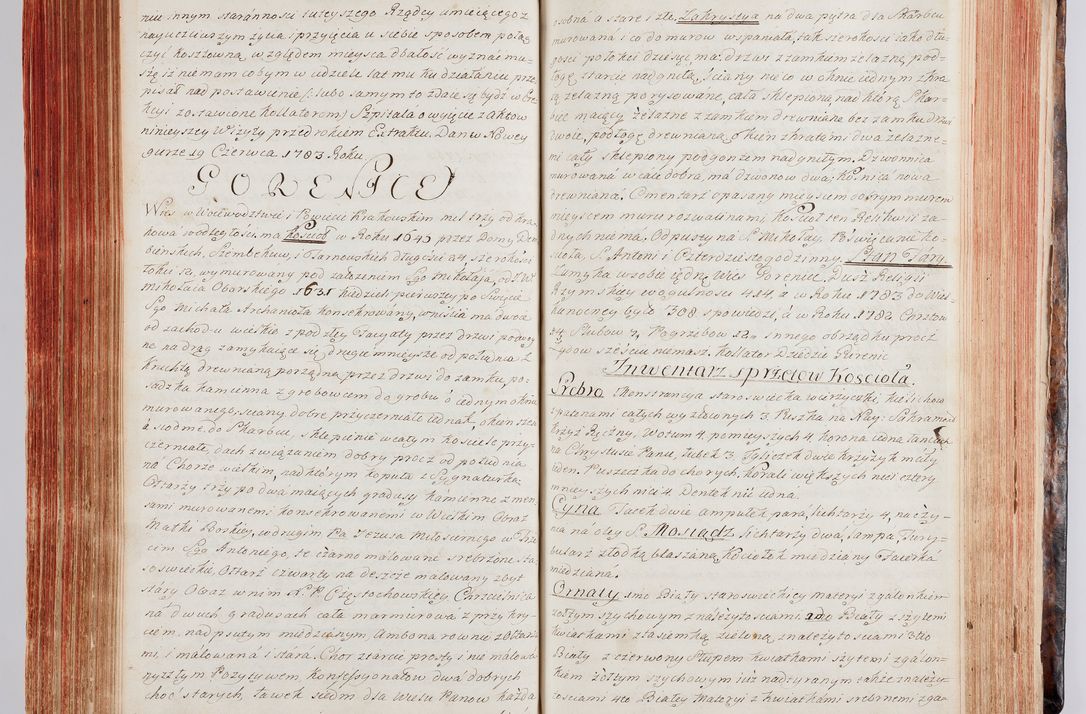 niu innym staránności tuteyszego Rządcy umieiącego z
nayuczciwszym życia przyięcia u siebie sposobem połą
czyć kosztowną względem mieysca dbałość wyznać mu-
szę iż nie mam co bym w udziele lat mu ku działaniu prze
pisał nad postawienie /: lubo samym to zdaie się bydź w Ere
kcyi zostawione kollatorom/ Szpitala o wyięcie z aktow
ninieyszey Wizyty przed rokiem Extraktu. Dan w Nowey
gurze 19 Czerwca 1783. Roku
GORENICE
Wieś w Woiewodztwie i Powiecie Krakowskim mil trzy od Kra
kowa w odległości, ma Kościoł w Roku 1645 przez Domy Dem
bieńskich, Szembekuw, i Tarnowskich długości 34, szerokości
łokci 12, wymurowany pod założeniem Sgo Mikołaia, od JW.
Mikołaia Oborskiego 1631 Niedzieli pierwszey po Święcie
Sgo Michała Archanioła konsekrowany, wniścia ma dwoie
od zachodu wielkie z podłey Facyaty przez drzwi podwoy
ne na drąg zamykaiące się, drugie mnieysze od południa z
Kruchtą drewnianą porządną przez drzwi do zamku, po-
sadzka kamienna z grobowcem do grobu o iednym oknie
murowanego, ściany dobre przyczerniałe iednak, okien sześć
á siodme do Skarbcu, sklepienie w całym kościele przy-
czerniałe, dach z wiązaniem dobry procz od południa
ná Chorze wielkim, nad którym kopuła z Sygnaturką
Ołtarzy trzy po dwá maiących gradusy kamienne z men
sami murowanemi konsekrowanemi w Wielkim Obraz
Matki Boskiey, w drugim Pa Jezusa Miłosiernego w Trze
cim Sgo Antoniego, te czarno malowane srebrzone sta
roświeckie, Ołtarz czwarty na deszce malowany zbyt
stáry Obraz w nim N. P. Częstochowskiey Chrzcielnica
na dwuch gradusach cała marmurowá z przykry
ciem, nadpsutym miedzianym, Ambona rownie z Ołtarza
mi, i malowaná i stárá. Chor ztarcic prosty i nie malowa
ny z złym Pozytywem, konfessyonałow dwá dobrych
choć starych, ławek siedm dla Wielu Panow każda
osobná á stare i złe. Zakrystya na dwa piętra dla Skarbcu
murowaná i co do murow wspaniáłá, tak szerokości iako dłu
gości po łokci dziesięć ma: drzwi z zamkiem żelazne, pod-
łogę z tarcic nadgniłą, ściany nieco w oknie iednym z kra
tą żelazną porysowane, cáłá sklepioná nad ktorą Skar-
biec maiący żelazne z zamkiem drewniane bez zamku drzwi
dwoie, podłogę drewnianą, okien z kratami dwá żelazne-
mi cáły sklepiony pod gonzem nadgniłym. Dzwonnica
murowaná w cale dobrá, má dzwonow dwa, kośnica nowá
drewniána. Cmentarz opasány mieyscem dobrym murem
mieyscem muru rozwalinami, kościoł ten Relikwii ża
dnych niemá. Odpusty ná S. Mikołay, Poświęcenie ko-
ścioła, S. Antoni i Czterdziestogodzinny. Stan Fary.
Zamyka w sobie iedną Wieś Gorenice. Dusz Religii
Rzymskiey w ogulności 414, á w Roku 1783 do Wiel-
kanocney było 308 spowiedzi, á w Roku 1782 Chrztow
34, Slubow 7, Pogrzebow 12. Innego obrządku procz
Zydow sześciu niemasz. Kollator Dziedzic Gorenic
Inwentarz sprzętow Kościoła.
Srebro Monstrancya staroświecka wierzysta, kielichow
z patenami całych wyzłoconych 3. Puszka na Nay: Sakrament
krzyż Ręczny, Wotum 4. pomnieyszych 4 korona iedna, łańcuch
na Chrystusie Panu, tubek 3. Tabliczek dwie krzyżyk máły
ieden. Puszeczka do chorych, korali większych nici cztery
mnieyszych nici 4 Dentek nic iedna.
Cyna Tacek dwie, ampułek para, lichtarzy 4, naczy-
nia ná oleie SS. Mosiądz lichtarzy dwá, lampa, Tury-
bularz z łodką blaszaną, kociołek miedziany, Fáierka
miedziána.
Ornaty 1mo Biáły staroświeckiey materyi z galonkiem
żołtym szychowym z należytościami. 2do Biáły z szytemi
kwiatkami z tasiemką zieloną, z należytościámi 3tio
Biały z czerwony słupem kwiatkami szytemi z galon-
kiem żołtym szychowym iuż nadtyranym także z należy-
tościami 4to Biały Materyi z kwiatkami srebrnemi z ga-